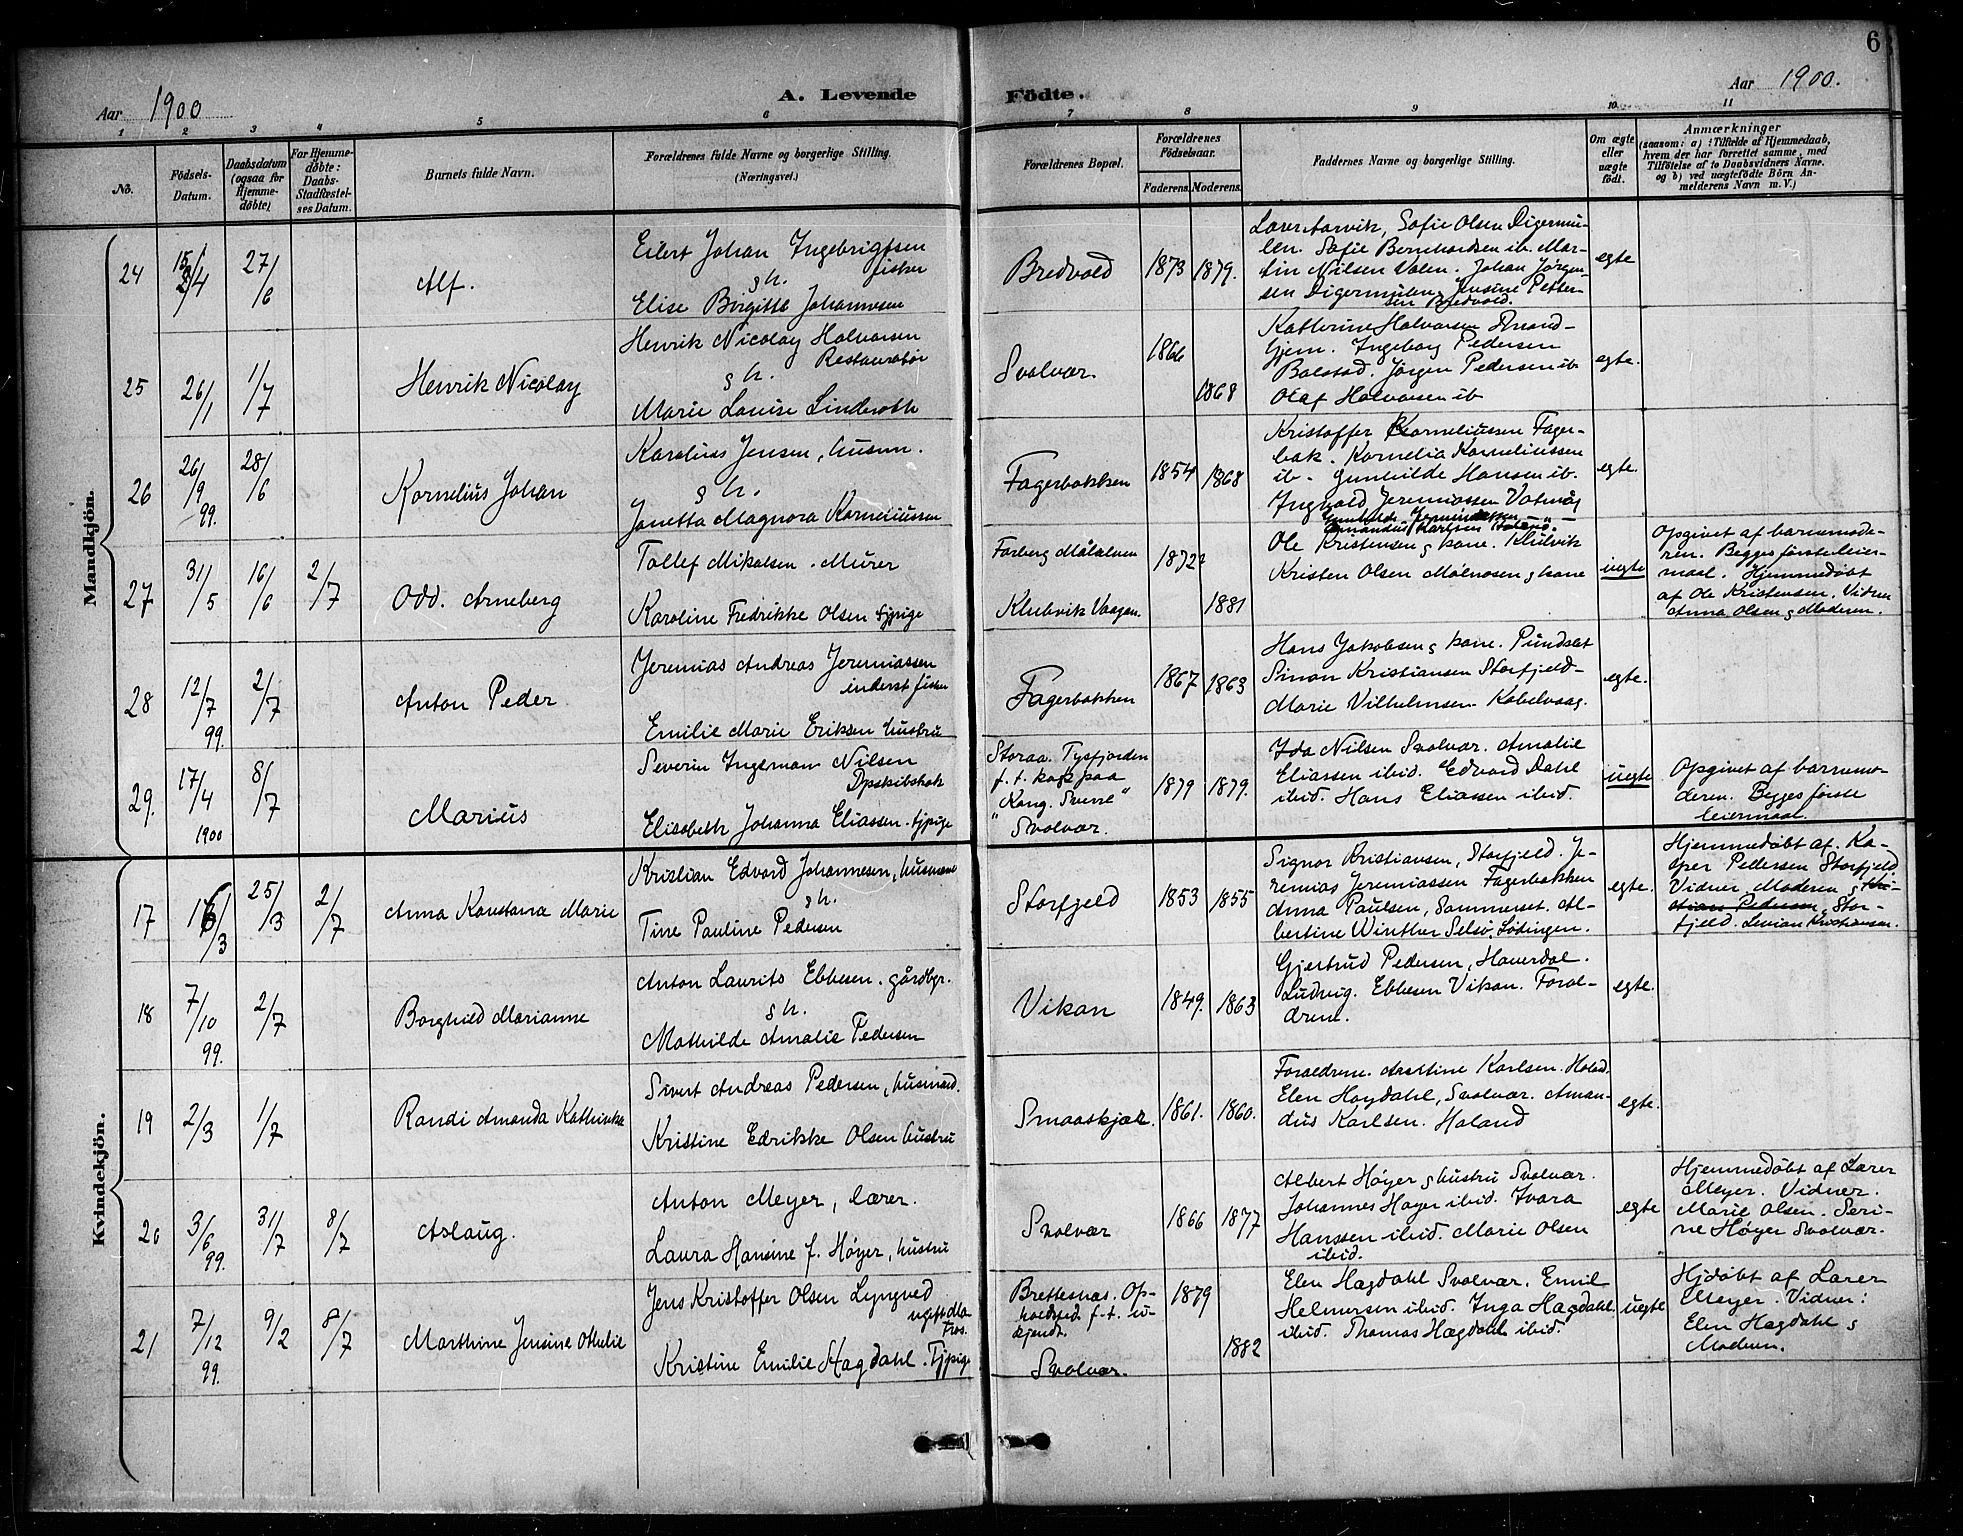 6
Aar 1900
A. Levende
Födte.
Aar 1900.
1 2 3 4 5 6 7 8 9 10 11
No.
Födsels-
Datum.
Daabsdatum
(ogsaa for
Hjemme-
döbte)
For Hjemme-
döbte:
Daabs-
Stadfæstel-
ses Datum.
Barnets fulde Navn.
Forældrenes fulde Navne og borgerlige Stilling.
(Næringsvei.)
Forældrenes Bopæl.
Forældrenes
Födselsaar.
Faderens. Moderens.
Faddernes Navne og borgerlige Stilling.
Om ægte
eller
uægte
födt.
Anmærkninger
(saasom: a) i Tilfælde af Hjemmedaab,
hvem der har forrettet samme, med
Tilföielse af to Daabsvidners Navne.
og b) ved uægtefödte Börn An-
melderens Navn m. V.)
Mandkjön.
24
27/6
Alf.
Eilert Johan Ingebrigtsen
fisker
g h.
Elise Birgitte Johannesen
Bredvold
1873 1879.
Lærer Aarvik, Sofie Olsen Digermu-
len. Sofie Bernhardsen ib. Mar-
tin Nilsen Valen. Johan Jörgen-
sen Digermulen, Jensine Petter-
sen Bredvold.
egte
25
26/1
1/7
Henrik Nicolay
Henrik Nicolay Halvorsen
Restauratör
g h.
Marie Louise Linderoth
Svolvær.
1866
1868
Katterine Halvorsen Trond-
hjem. Ingeborg Pedersen
Balstad. Jörgen Pedersen ib
Olaf Halvorsen ib
egte.
26
26/9
99.
28/6
Kornelius Johan
Karolius Jensen, husm.
g h.
Janetta Magnora Korneliussen
Fagerbakken
1854 1868
Kristoffer Korneliussen Fager-
bak. Kornelia Korneliussen
ib. Gunhilde Hansen ib.
Ingvald Jeremiassen Vatnög
Amandus Karlsen
egte.
27
31/5
16/6
2/7
Odd. Arneberg
Tollef Mikalsen. Murer
Karoline Fredrikke Olsen tjpige
Forberg Målselven
Klubvik Vaagan.
1872?
1881
Ole Kristensen g kone. Klubvik
Kristen Olsen Mölnosen g kone
uegte
Opgivet af barnemode-
ren. Begges förste leier-
maal. Hjemmedöbt
af Ole Kristensen, Vidner
Anna Olsen g Moderen.
28
12/7
99.
2/7
Anton Peder
Jeremias Andreas Jeremiassen
inderst fisker
Emilie Marie Eriksen hustru
Fagerbakken
1867 1863
Hans Jakobsen g kone. Pundslet
Simon Kristiansen Storfjeld-
Marie Vilhelmsen Kabelvaag.
egte.
29.
17/4
1900
8/7
Marius
Severin Ingeman Nilsen
Dpskibskok
Elisabeth Johanna Eliassen. tjpige
Storaa. Tysfjorden
f. t. kok paa
"Kong. Sverre"
Svolvær.
1879 1879.
Ida Nilsen Svolvær. Amalie
Eliassen ibid. Edvard Dahl
ibid. Hans Eliassen ibid.
uegte
Opgivet af barnemo-
deren. Begges förste
leiermaal.
Kvindekjön.
17
16/3
25/3
2/7
Anna Konstana Marie
Kristian Edvard Johannesen, husmand
g h.
Tine Pauline Pedersen
Storfjeld
1853 1855
Signor Kristiansen, Storfjeld. Je-
remias Jeremiassen Fagerbakken
Anna Paulsen, Sommerset. Al-
bertine Winther Selsö, Lödingen.
egte.
Hjemmedöbt af. Ka-
sper Pedersen Storfjeld.
Vidner Moderen g Kri-
stian Pedersen, Stor-
fjeld. Kristiansen.
18
7/10
99.
2/7
Borghild Marianne
Anton Laurits Ebbesen. gårdbgr.
g h.
Mathilde Amalie Pedersen
Vikan
1849. 1863
Gjertrud Pedersen, Haversdal.
Ludvig. Ebbesen Vikan. Foræl-
drene.
egte.
19
2/3
1/7
Randi Amanda Kathinka
Sivert Andreas Pedersen, husmand.
Kristine Edrikke Olsen hustru
Smaaskjær.
1861. 1860.
Forældrene. Karlsen. Holand.
Elen Høgdahl, Svolvær. Aman-
dus Karlsen. Holand
egte.
20
3/6
99.
31/7
8/7
Aslaug.
Anton Meyer, lærer.
Laura Hansine f. Høyer, hustru
Svolvær
1866 1877
Albert Høyer g hustru Svolvær.
Johannes Høyer ibid. Ivara
Hanssen ibid. Marie Olsen
ibid.
egte
Hjemmedøbt af Lærer
Meyer. Vidner.
Marie Olsen. Seri-
ne Høyer Svolvær.
21
7/12
99.
9/2
8/7
Marthine Jensine Othelie
Jens Kristoffer Olsen Lyngved
ugift
Kristine Emilie Hagdahl. Tjpige
Brettesnæs. Op-
holdsted f. t. u-
kjendt.
Svolvær.
1879
1882
Elen Hagdahl Svolvær. Emil
Helmersen ibid. Inga Hagdahl
ibid. Thomas Hægdahl ibid.
uegte
Hjdøbt af Lærer
Meyer. Vidner:
Elen Hagdahl g
Moderen.